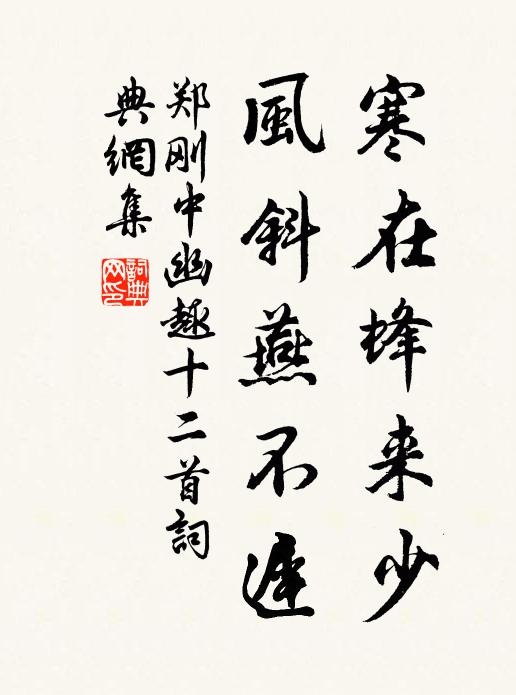 寒在蜂来少
風斜燕不遅
郑刚中幽趣十二首詞
典網集
詞典
网印